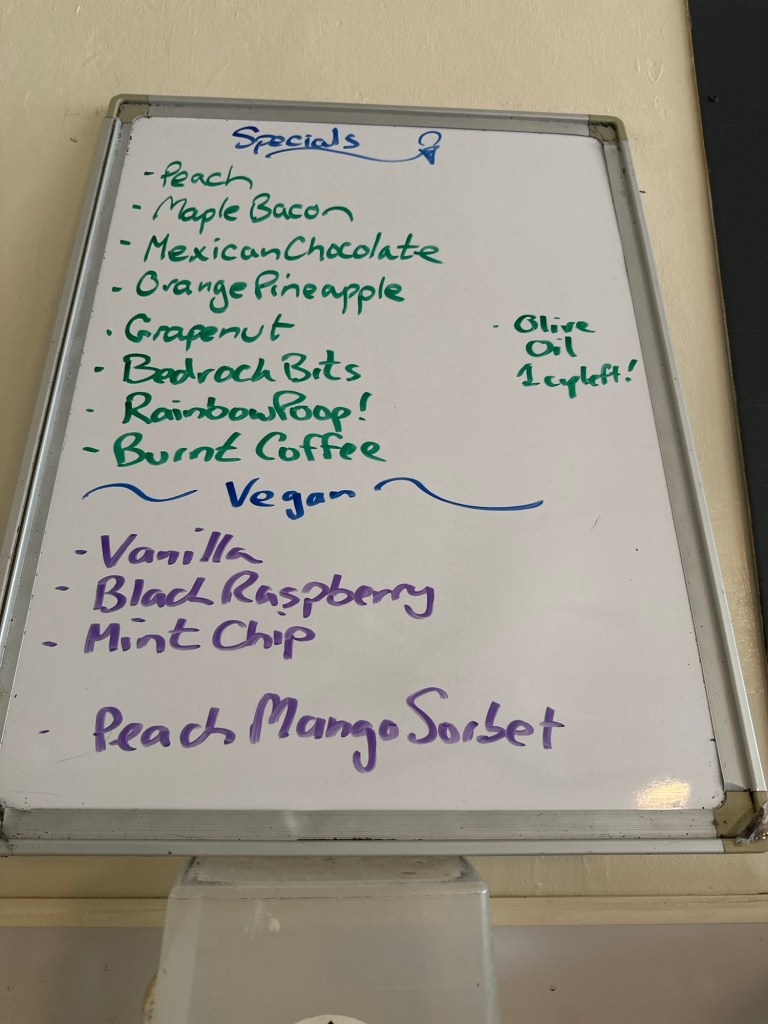 Specials
- Peach
- Maple Bacon
- Mexican Chocolate
- Orange Pineapple
- Grapenut
- Bedrock Bits
- Rainbow Poop!
- Burnt Coffee
- Olive
Oil
1 cup left!
Vegan
- Vanilla
- Black Raspberry
- Mint Chip
- Peach Mango Sorbet